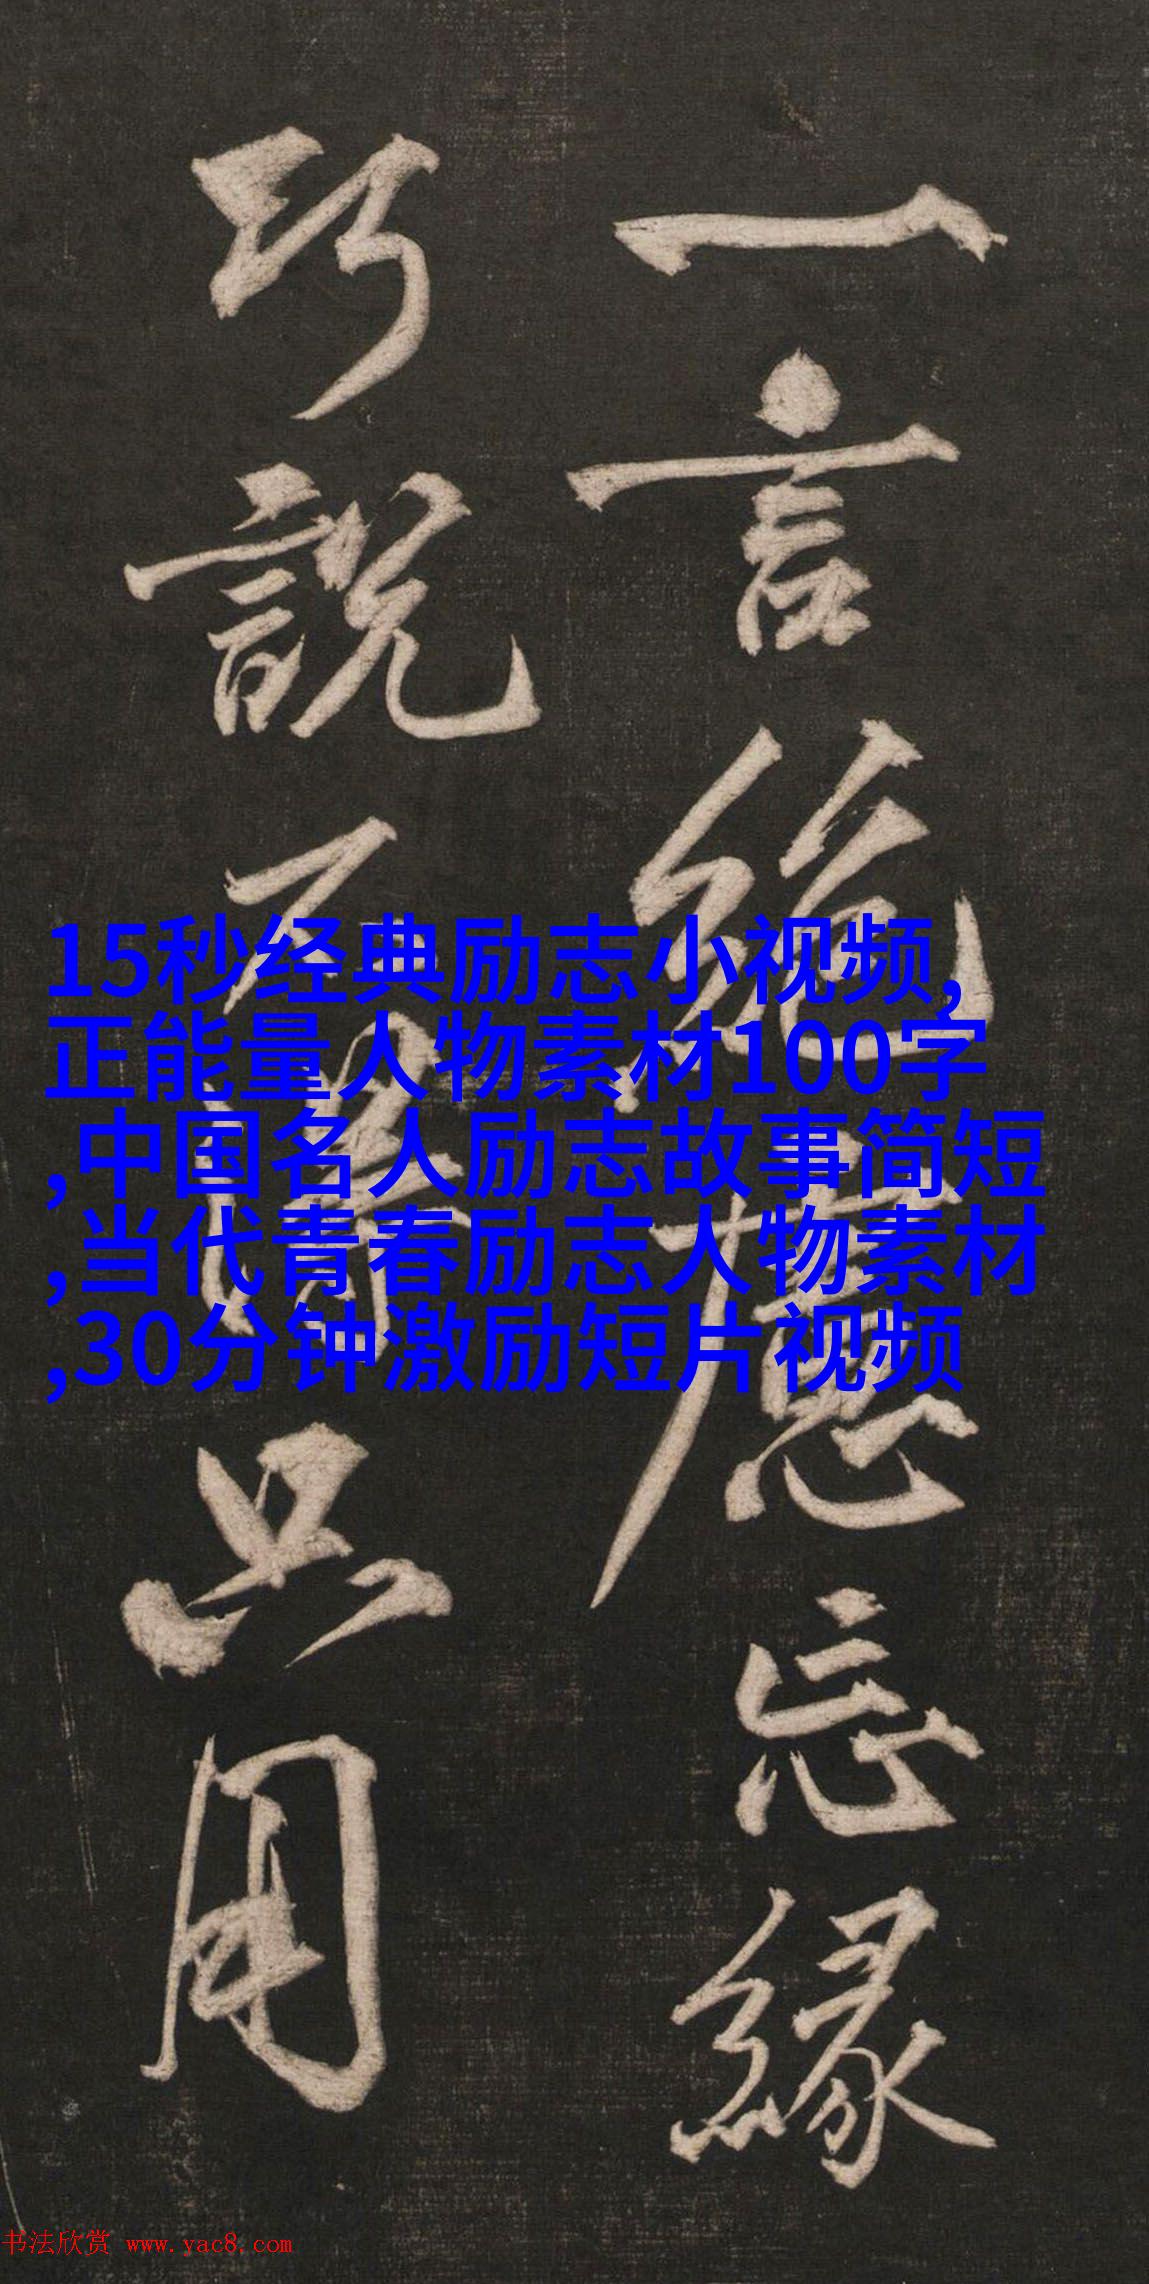 一言絶慮忘緣
巧說不得只用
15秒经典励志小视频,
正能量人物素材100字
,中国名人励志故事简短
,当代青春励志人物素材
,30分钟激励短片视频
书法欣赏 www.yac8.com